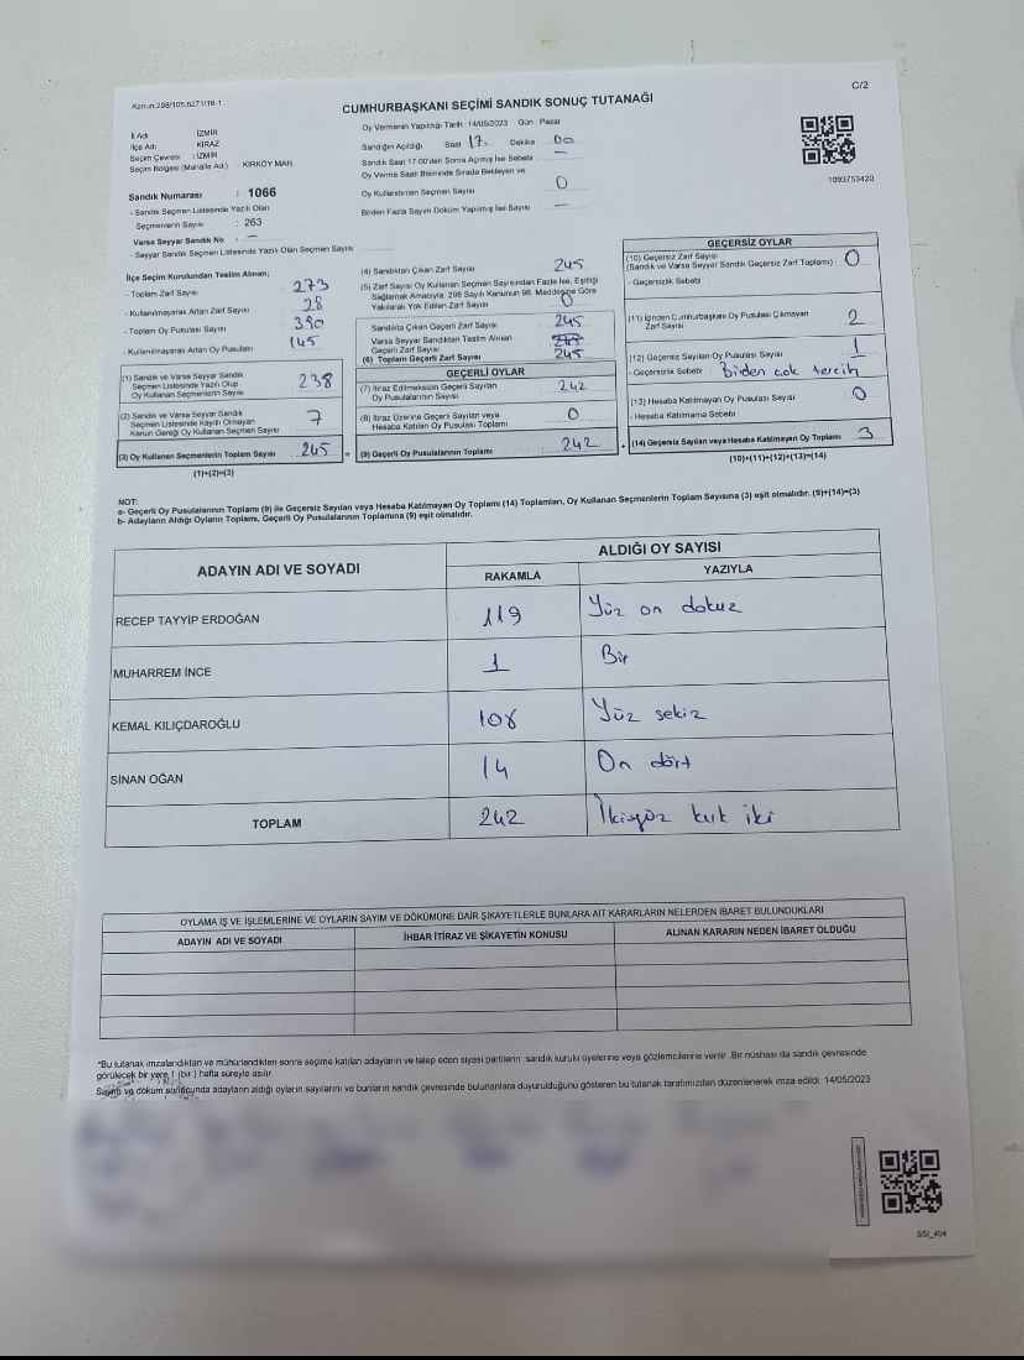 C/2
CUMHURBAŞKANI SEÇİMİ SANDIK SONUÇ TUTANAĞI
İl Adı : İZMİR
İlçe Adı : KİRAZ
Seçim Çevresi : İZMİR
Seçim Bölgesi (Mahalle Adı) : KIRKÖY MAH.
Sandık Numarası : 1066
- Sandık Seçmen Listesinde Yazılı Olan
Seçmenlerin Sayısı : 263
Varsa Seyyar Sandık No : -
- Seyyar Sandık Seçmen Listesinde Yazılı Olan Seçmen Sayısı
Oy Vermenin Yapıldığı Tarih : 14/05/2023 Gün : Pazar
Sandığın Açıldığı Saat 17. Dakika 00
Sandık Saat 17:00'den Sonra Açılmış İse Sebebi —
Oy Verme Saati Bitiminde Sırada Bekleyen ve
Oy Kullandırılan Seçmen Sayısı 0
Birden Fazla Sayım Döküm Yapılmış İse Sayısı —
1093753420
İlçe Seçim Kurulundan Teslim Alınan;
- Toplam Zarf Sayısı 273
- Kullanılmayarak Artan Zarf Sayısı 28
- Toplam Oy Pusulası Sayısı 390
- Kullanılmayarak Artan Oy Pusulası 145
(1) Sandık ve Varsa Seyyar Sandık
Seçmen Listesinde Yazılı Olup
Oy Kullanan Seçmenlerin Sayısı 238
(2) Sandık ve Varsa Seyyar Sandık
Seçmen Listesinde Kayıtlı Olmayan
Kanun Gereği Oy Kullanan Seçmen Sayısı 7
(3) Oy Kullanan Seçmenlerin Toplam Sayısı 245
(1)+(2)=(3)
(4) Sandıktan Çıkan Zarf Sayısı 245
(5) Zarf Sayısı Oy Kullanan Seçmen Sayısından Fazla İse, Eşitliği
Sağlamak Amacıyla, 298 Sayılı Kanunun 98. Maddesine Göre
Yakılarak Yok Edilen Zarf Sayısı 0
Sandıkta Çıkan Geçerli Zarf Sayısı 245
Varsa Seyyar Sandıktan Teslim Alınan
Geçerli Zarf Sayısı
(6) Toplam Geçerli Zarf Sayısı 245
GEÇERLİ OYLAR
(7) İtiraz Edilmeksizin Geçerli Sayılan
Oy Pusulalarının Sayısı 242
(8) İtiraz Üzerine Geçerli Sayılan veya
Hesaba Katılan Oy Pusulası Toplamı 0
(9) Geçerli Oy Pusulalarının Toplamı 242
GEÇERSİZ OYLAR
(10) Geçersiz Zarf Sayısı
(Sandık ve Varsa Seyyar Sandık Geçersiz Zarf Toplamı) : 0
- Geçersizlik Sebebi
(11) İçinden Cumhurbaşkanı Oy Pusulası Çıkmayan
Zarf Sayısı 2
(12) Geçersiz Sayılan Oy Pusulası Sayısı 1
- Geçersizlik Sebebi : Birden çok tercih
(13) Hesaba Katılmayan Oy Pusulası Sayısı 0
- Hesaba Katılmama Sebebi
(14) Geçersiz Sayılan veya Hesaba Katılmayan Oy Toplamı 3
(10)+(11)+(12)+(13)=(14)
NOT:
a- Geçerli Oy Pusulalarının Toplamı (9) ile Geçersiz Sayılan veya Hesaba Katılmayan Oy Toplamı (14) Toplamları, Oy Kullanan Seçmenlerin Toplam Sayısına (3) eşit olmalıdır. (9)+(14)=(3)
b- Adayların Aldığı Oyların Toplamı, Geçerli Oy Pusulalarının Toplamına (9) eşit olmalıdır.
ADAYIN ADI VE SOYADI
ALDIĞI OY SAYISI
RAKAMLA YAZIYLA
RECEP TAYYİP ERDOĞAN 119 Yüz on dokuz
MUHARREM İNCE 1 Bir
KEMAL KILIÇDAROĞLU 108 Yüz sekiz
SİNAN OĞAN 14 On dört
TOPLAM 242 İkiyüz kırk iki
OYLAMA İŞ VE İŞLEMLERİNE VE OYLARIN SAYIM VE DÖKÜMÜNE DAİR ŞİKAYETLERLE BUNLARA AİT KARARLARIN NELERDEN İBARET BULUNDUKLARI
ADAYIN ADI VE SOYADI İHBAR İTİRAZ VE ŞİKAYETİN KONUSU ALINAN KARARIN NEDEN İBARET OLDUĞU
"Bu tutanak imzalandıktan ve mühürlendikten sonra seçime katılan adayların ve talep eden siyasi partilerin sandık kurulu üyelerine veya gözlemcilerine verilir. Bir nüshası da sandık çevresinde
görülecek bir yere 1 (bir) hafta süreyle asılır.
Sayım ve döküm sonucunda adayların aldığı oyların sayılarını ve bunların sandık çevresinde bulunanlara duyurulduğunu gösteren bu tutanak tarafımızdan düzenlenerek imza edildi. 14/05/2023